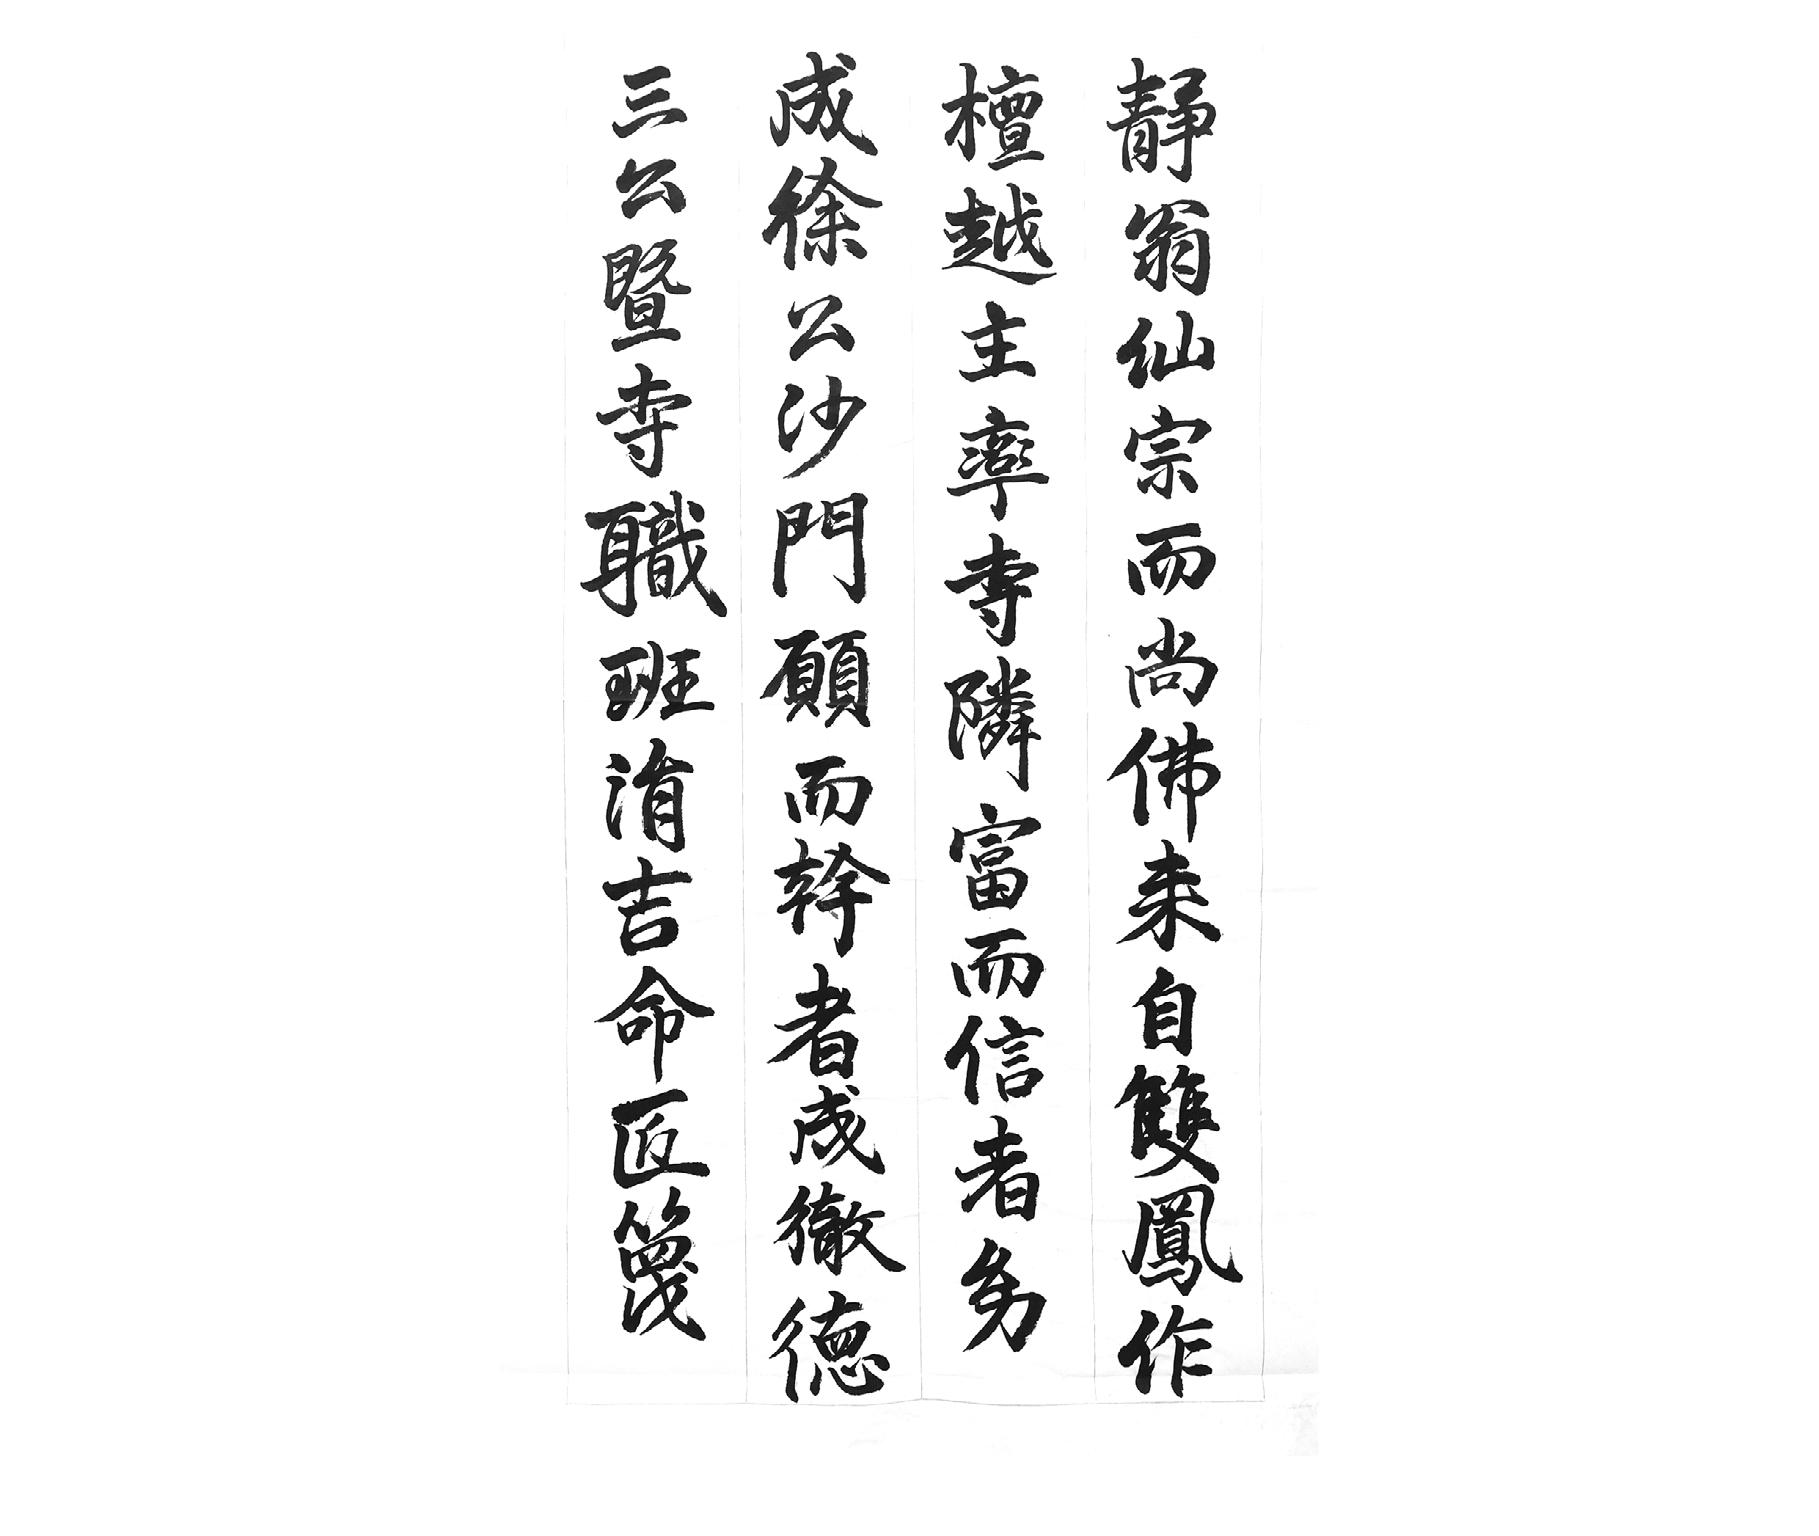 靜翁仙宗而尚佛来自雙鳳作
檀越主率寺隣富而信者
成徐公沙門願而幹者成徹德
三公暨寺職班涓吉命匠篾